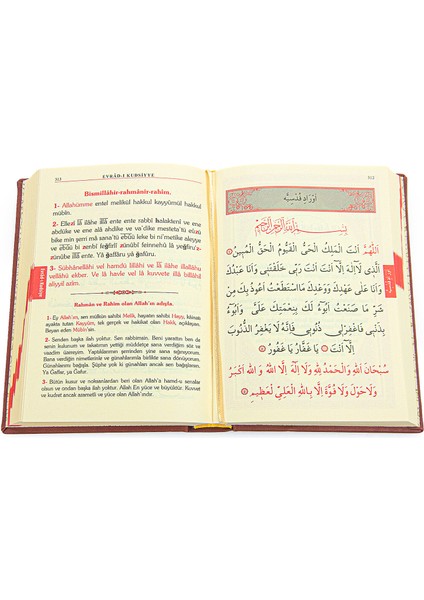 313
EVRÂD-I KUDSİYYE
Bismillâhir-rahmânir-rahîm.
1- Allahümme entel melikül hakkul kayyûmül hakkul
mübîn.
2- Ellezî lâ ilâhe ille ente ente rabbî halaktenî ve ene
abdüke ve ene alâ ahdike ve va'dike mesteta'tü eûzü
bike min şerri mâ sana'tü ebûü leke bi ni'metike aleyye
ve ebûü bi zenbî feğfirlî zünûbî feinnehû lâ yeğfiru'z-
zünûbe illâ ente. Yâ ğaffâru yâ ğafûru.
3- Sübhânellâhi vel hamdü lillâhi ve lâ ilâhe illallâhu
vellâhü ekber. Ve lâ havle vel lâ kuvvete illâ billâhil
aliyyil azîm.
Rahmân ve Rahîm olan Allah'ın adıyla.
1- Ey Allah'ım, sen mülkün sahibi Melik, hayatın sahibi Hayy, kâinatı
ayakta tutan Kayyûm, tek gerçek ve hakikat olan Hakk, açıklayan,
Beyan eden Mübin'sin.
2- Senden başka ilah yoktur. Sen rabbimsin. Beni yarattın ben de
senin kulunum ve takatımın yettiği müddetçe sana verdiğim söz ve
vaadim üzereyim. Yaptıklarımın şerrinden yine sana sığınıyorum.
Bana verdiğin nimetlerinle ve günahlarımla birlikte sana dönüyorum.
Günahlarımı bağışla. Şüphe yok ki günahları ancak sen bağışlarsın.
Ya Gaffar, ya Gafur.
3- Bütün kusur ve noksanlardan beri olan Allah'a hamd-u senalar
olsun ve ondan başka ilah yoktur. Allah en yüce ve büyüktür. Kuvvet
ve kudret ancak azametli ve yüce olan Allah'ındır.
اَوْرَادِ قُدْسِيَّه
بِسْمِ اللهِ الرَّحْمٰنِ الرَّحِيمِ
اَللّٰهُمَّ اَنْتَ الْمَلِكُ الْحَيُّ الْقَيُّومُ الْحَقُّ الْمُبِينُ
اَلَّذِي لَا اِلٰهَ اِلَّا اَنْتَ اَنْتَ رَبِّي خَلَقْتَنِي وَاَنَا عَبْدُكَ
وَاَنَا عَلٰى عَهْدِكَ وَوَعْدِكَ مَااسْتَطَعْتُ اَعُوذُ بِكَ مِنْ
شَرِّ مَا صَنَعْتُ اَبُوءُ لَكَ بِنِعْمَتِكَ عَلَيَّ وَاَبُوءُ
بِذَنْبِي فَاغْفِرْلِي ذُنُوبِي فَاِنَّهُ لَا يَغْفِرُ الذُّنُوبَ
اِلَّا اَنْتَ يَا غَفَّارُ يَا غَفُورُ
سُبْحَانَ اللهِ وَالْحَمْدُ لِلّٰهِ وَلَا اِلٰهَ اِلَّا اللهُ وَ اللهُ اَكْبَرُ
وَلَاحَوْلَ وَلَا قُوَّةَ اِلَّا بِاللهِ الْعَلِيِّ الْعَظِيمِ